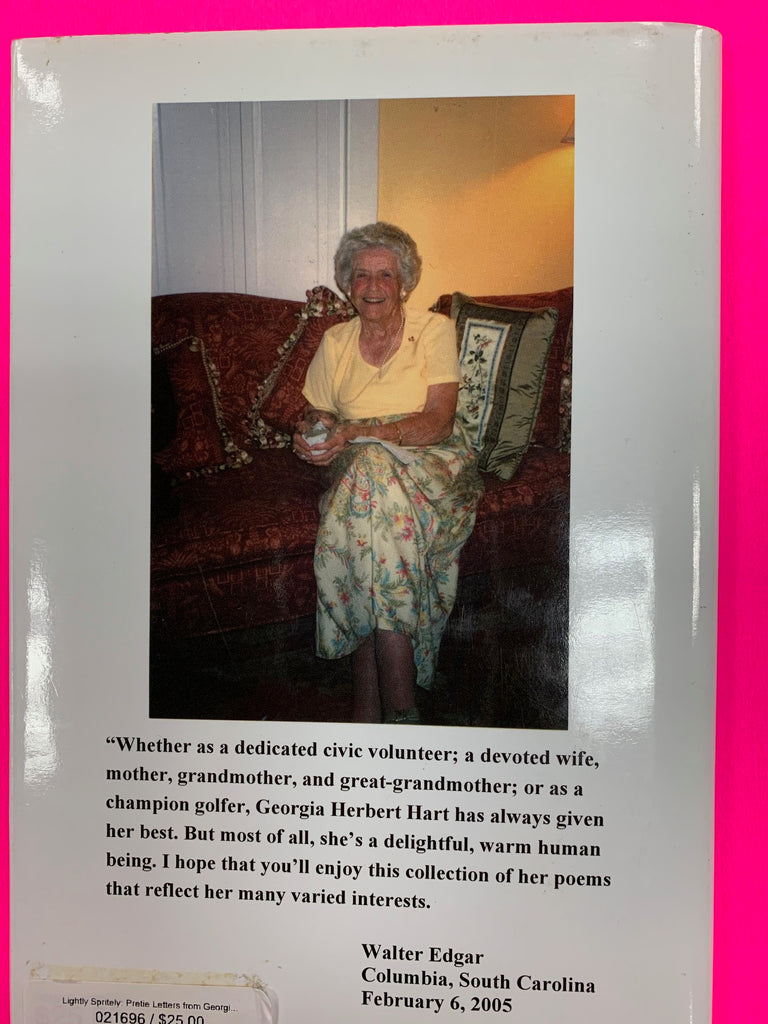 “Whether as a dedicated civic volunteer; a devoted wife,
mother, grandmother, and great-grandmother; or as a
champion golfer, Georgia Herbert Hart has always given
her best. But most of all, she’s a delightful, warm human
being. I hope that you’ll enjoy this collection of her poems
that reflect her many varied interests.
Walter Edgar
Columbia, South Carolina
February 6, 2005
Lightly Spritely: Pretie Letters from Georgi...
021696 / $25.00